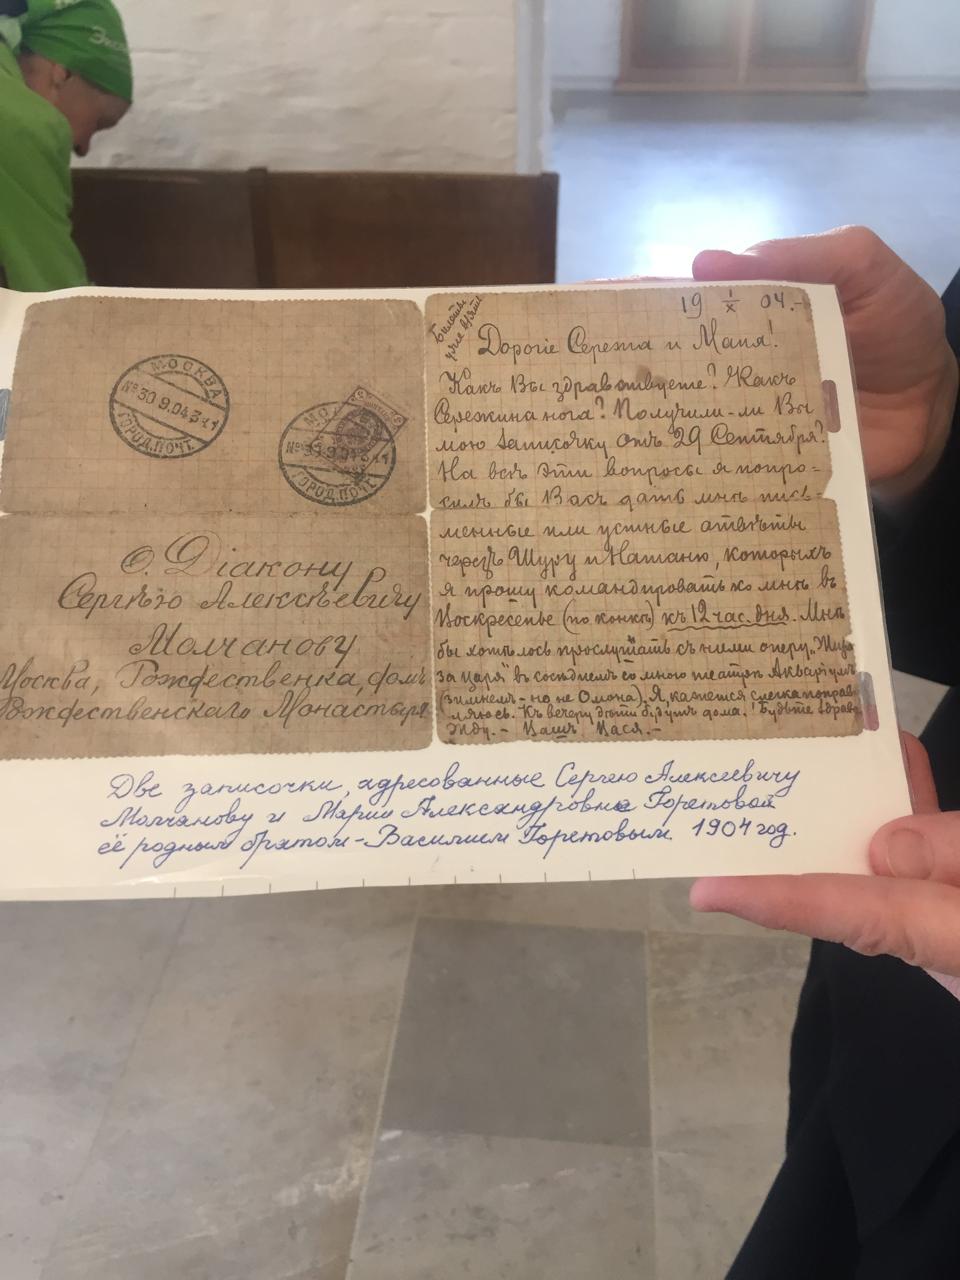 Эко
МОСКВА
№30 9.04 3
ГОРОД.ПОЧТ.
МО
ГОРОД.ПОЧТ.
О. Діакону
Сергѣю Алексѣевичу
Молчанову
Москва, Рождественка, домъ
Рождественскаго Монастыря
Билеты
уже взяты
19 1/X 04.-
Дорогіе Сережа и Маня!
Какъ Вы здравствуете? Какъ
Сережина нога? Получили-ли Вы
мою записочку отъ 29 Сентября?
На всѣ эти вопросы я попро=
силъ бы Васъ дать мнѣ пись=
менные или устные отвѣты
черезъ Шуру и Наташу, которыхъ
я прошу командировать ко мнѣ въ
Воскресенье (по конкѣ) къ 12 час. дня. Мнѣ
бы хотѣлось прослушать съ ними оперу „Жизнь
за царя" въ сосѣднемъ со мною театрѣ Акваріумъ
(зимнемъ - но не Омона). Я, кажется, слегка поправ
ляюсь. Къ вечеру дѣти будутъ дома. Будьте здравы
Жду.- Вашъ Вася.-
Две записочки, адресованные Сергею Алексеевичу
Молчанову и Марии Александровне Горетовой
её родным братом - Василием Горетовым. 1904 год.